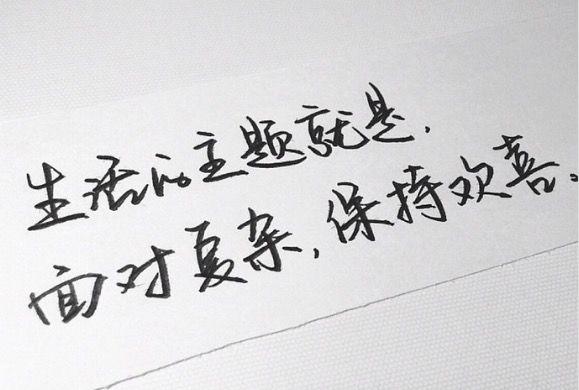 生活的主题就是，
面对复杂，保持欢喜。